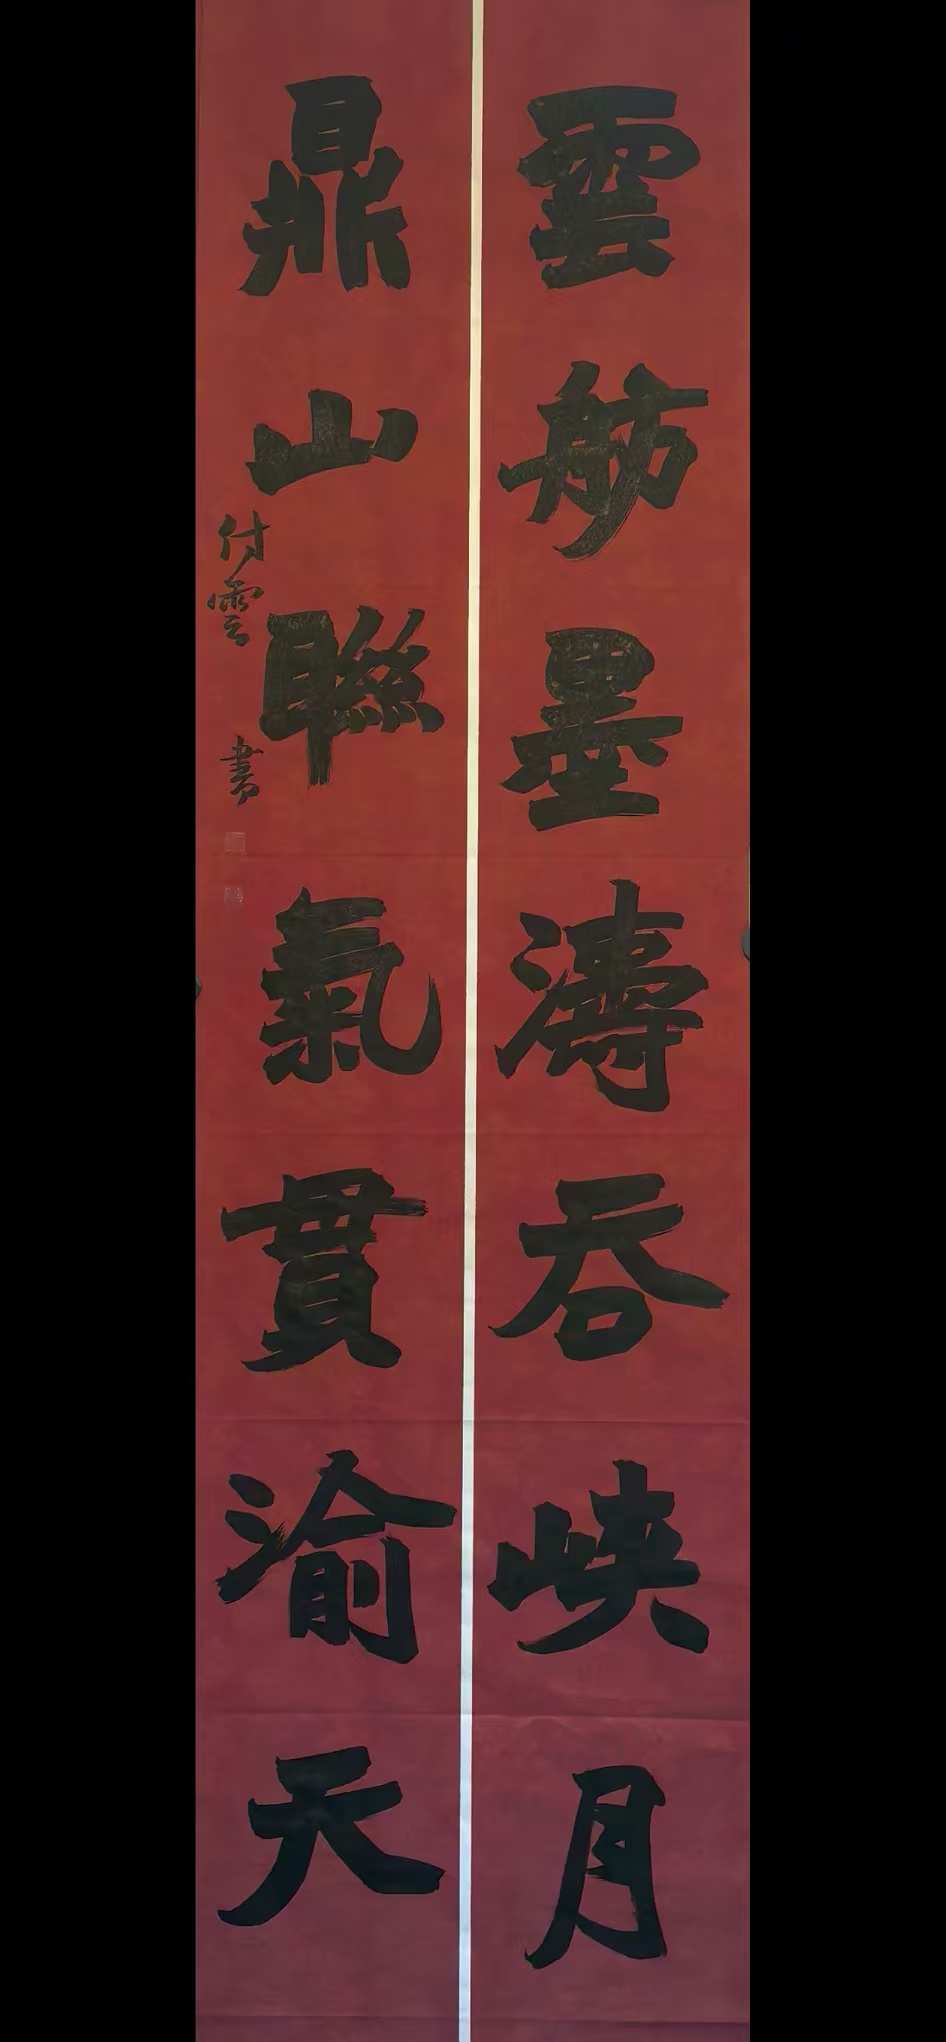 雲舫墨濤吞峽月
鼎山聯氣貫渝天
付雲 書